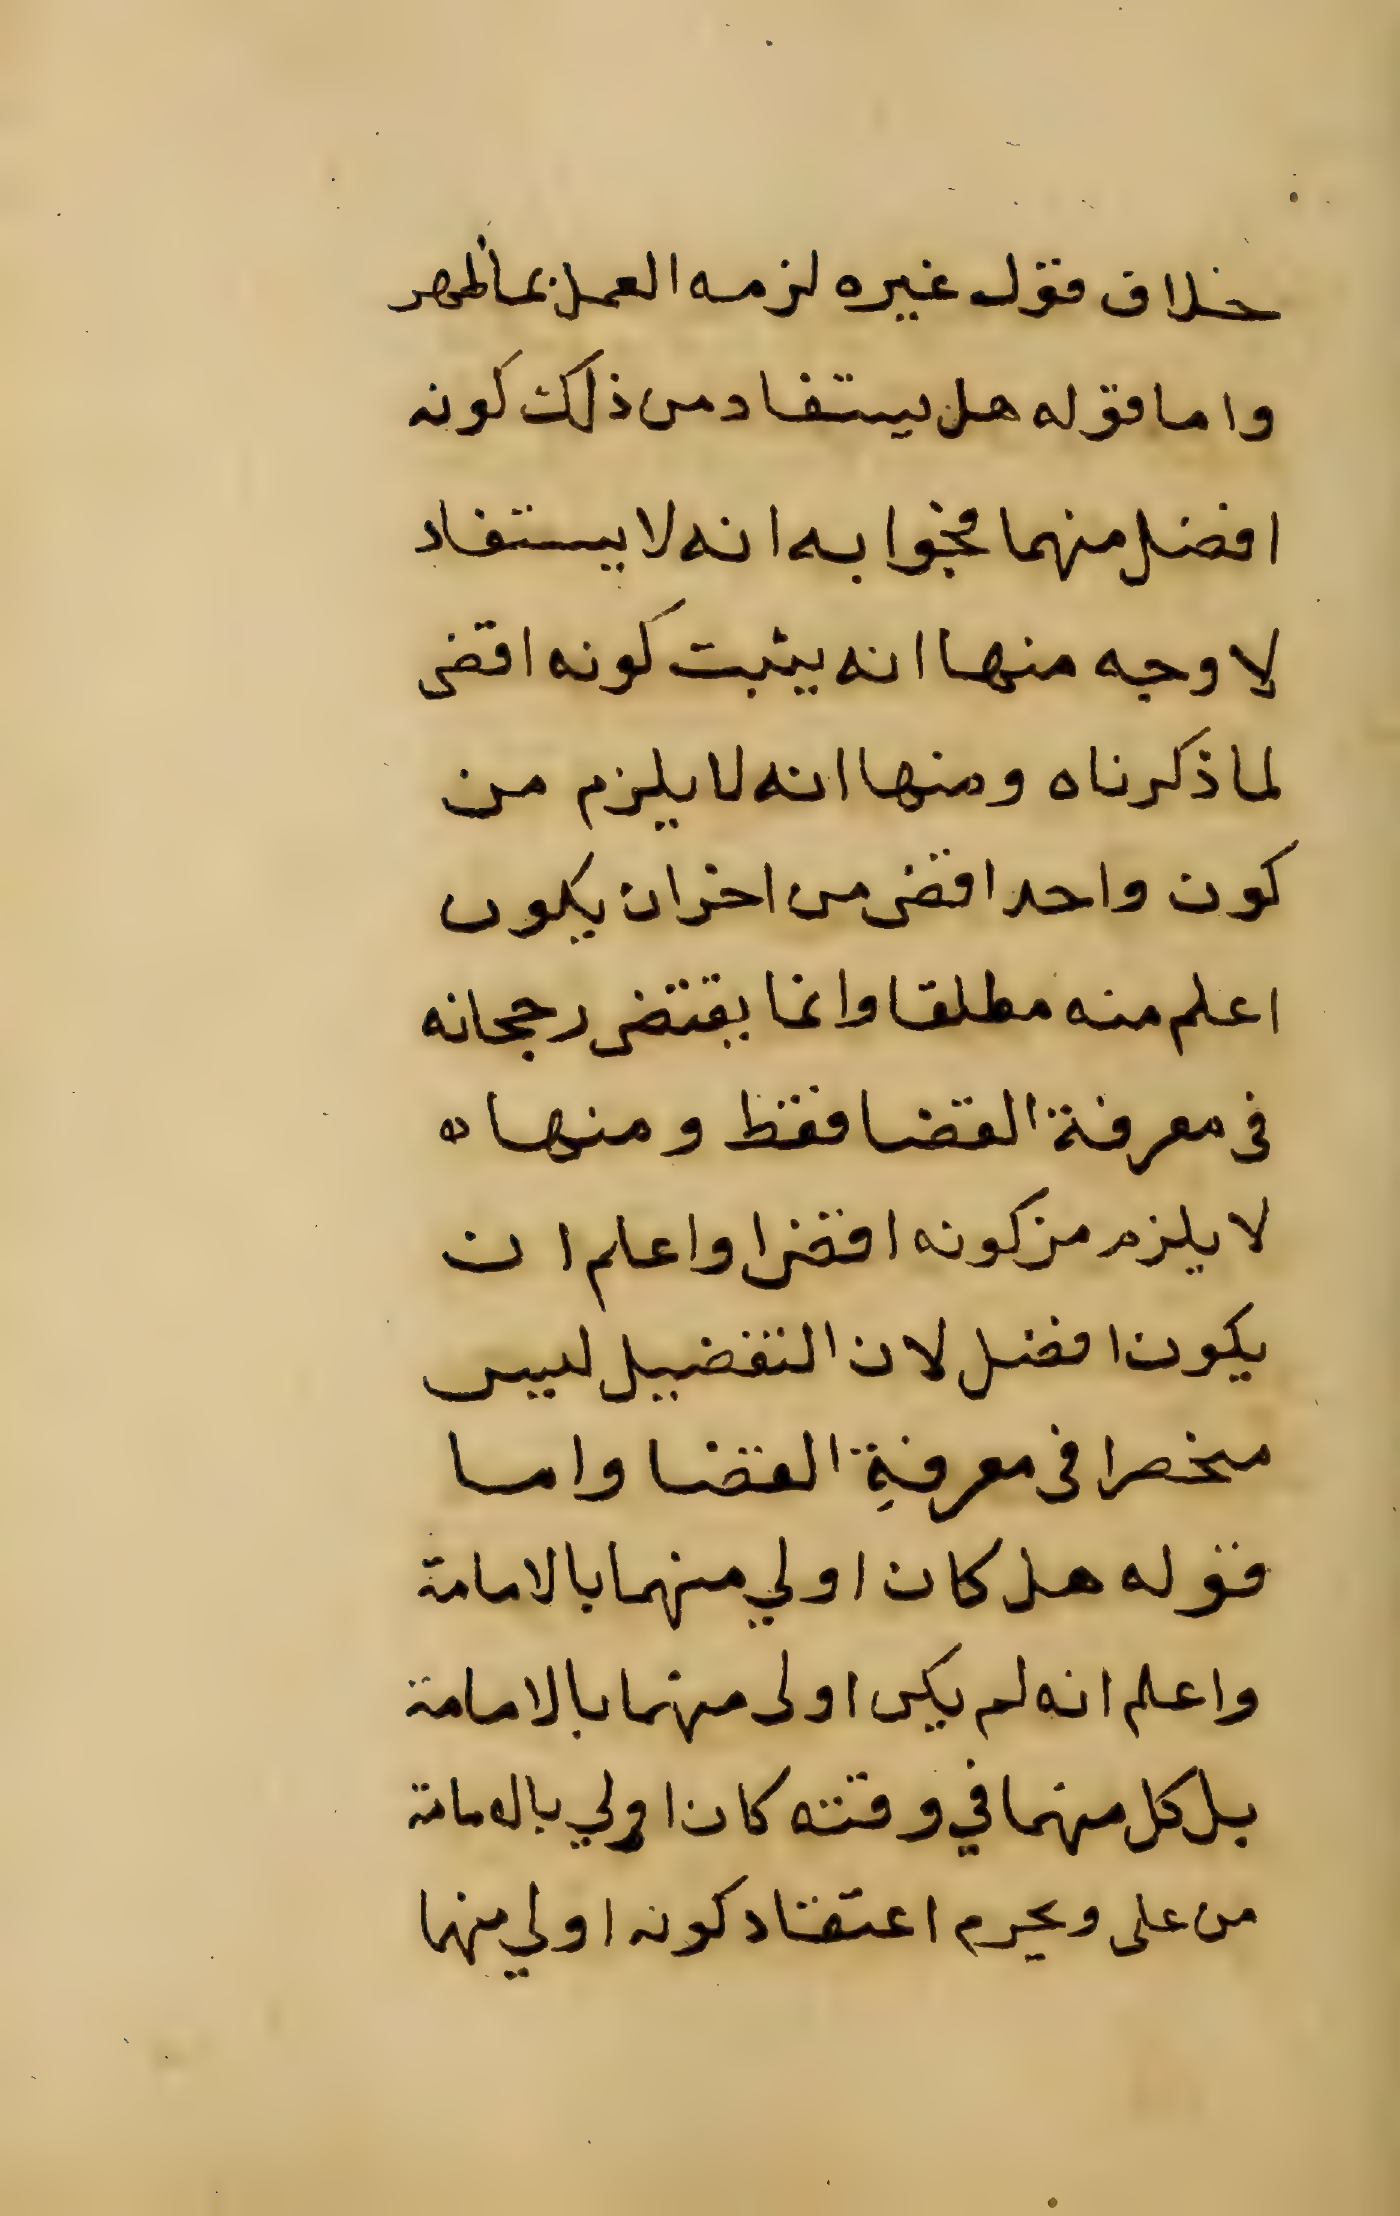 خلاف قول غيره لزمه العمل بما ظهر
واما قوله هل يستفاد من ذلك كونه
افضل منهما فجوابه انه لا يستفاد
لاوجه منها انه يثبت كونه اقضى
لما ذكرناه ومنها انه لا يلزم من
كون واحد اقضى من اخر ان يكون
اعلم منه مطلقا وانما يقتضى رجحانه
فى معرفة القضا فقط ومنها ه
لا يلزم من كونه اقضى واعلم ان
يكون افضل لان التفضيل ليس
منحصرا فى معرفة القضا واما
قوله هل كان اولي منهما بالامامة
واعلم انه لم يكن اولى منهما بالامامة
بل كل منهما في وقته كان اولي بالامامة
من على ويحرم اعتقاد كونه اولي منهما